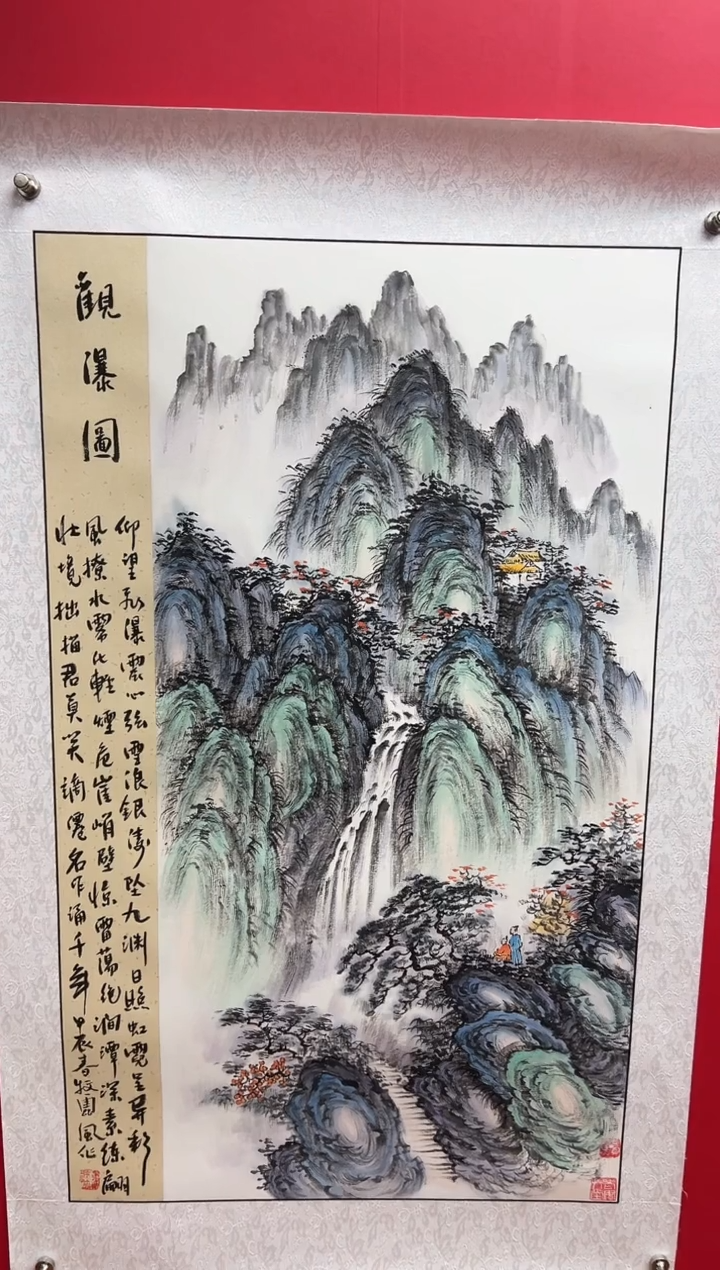 觀瀑圖
仰望飛瀑震心弦雪浪銀濤墜九淵日照虹霓呈異彩
風撩水霧化輕煙危崖峭壁驚雷蕩絕澗潭深素練翩
壯境拙描君莫笑謫僊名作誦千年甲辰春牧園風作